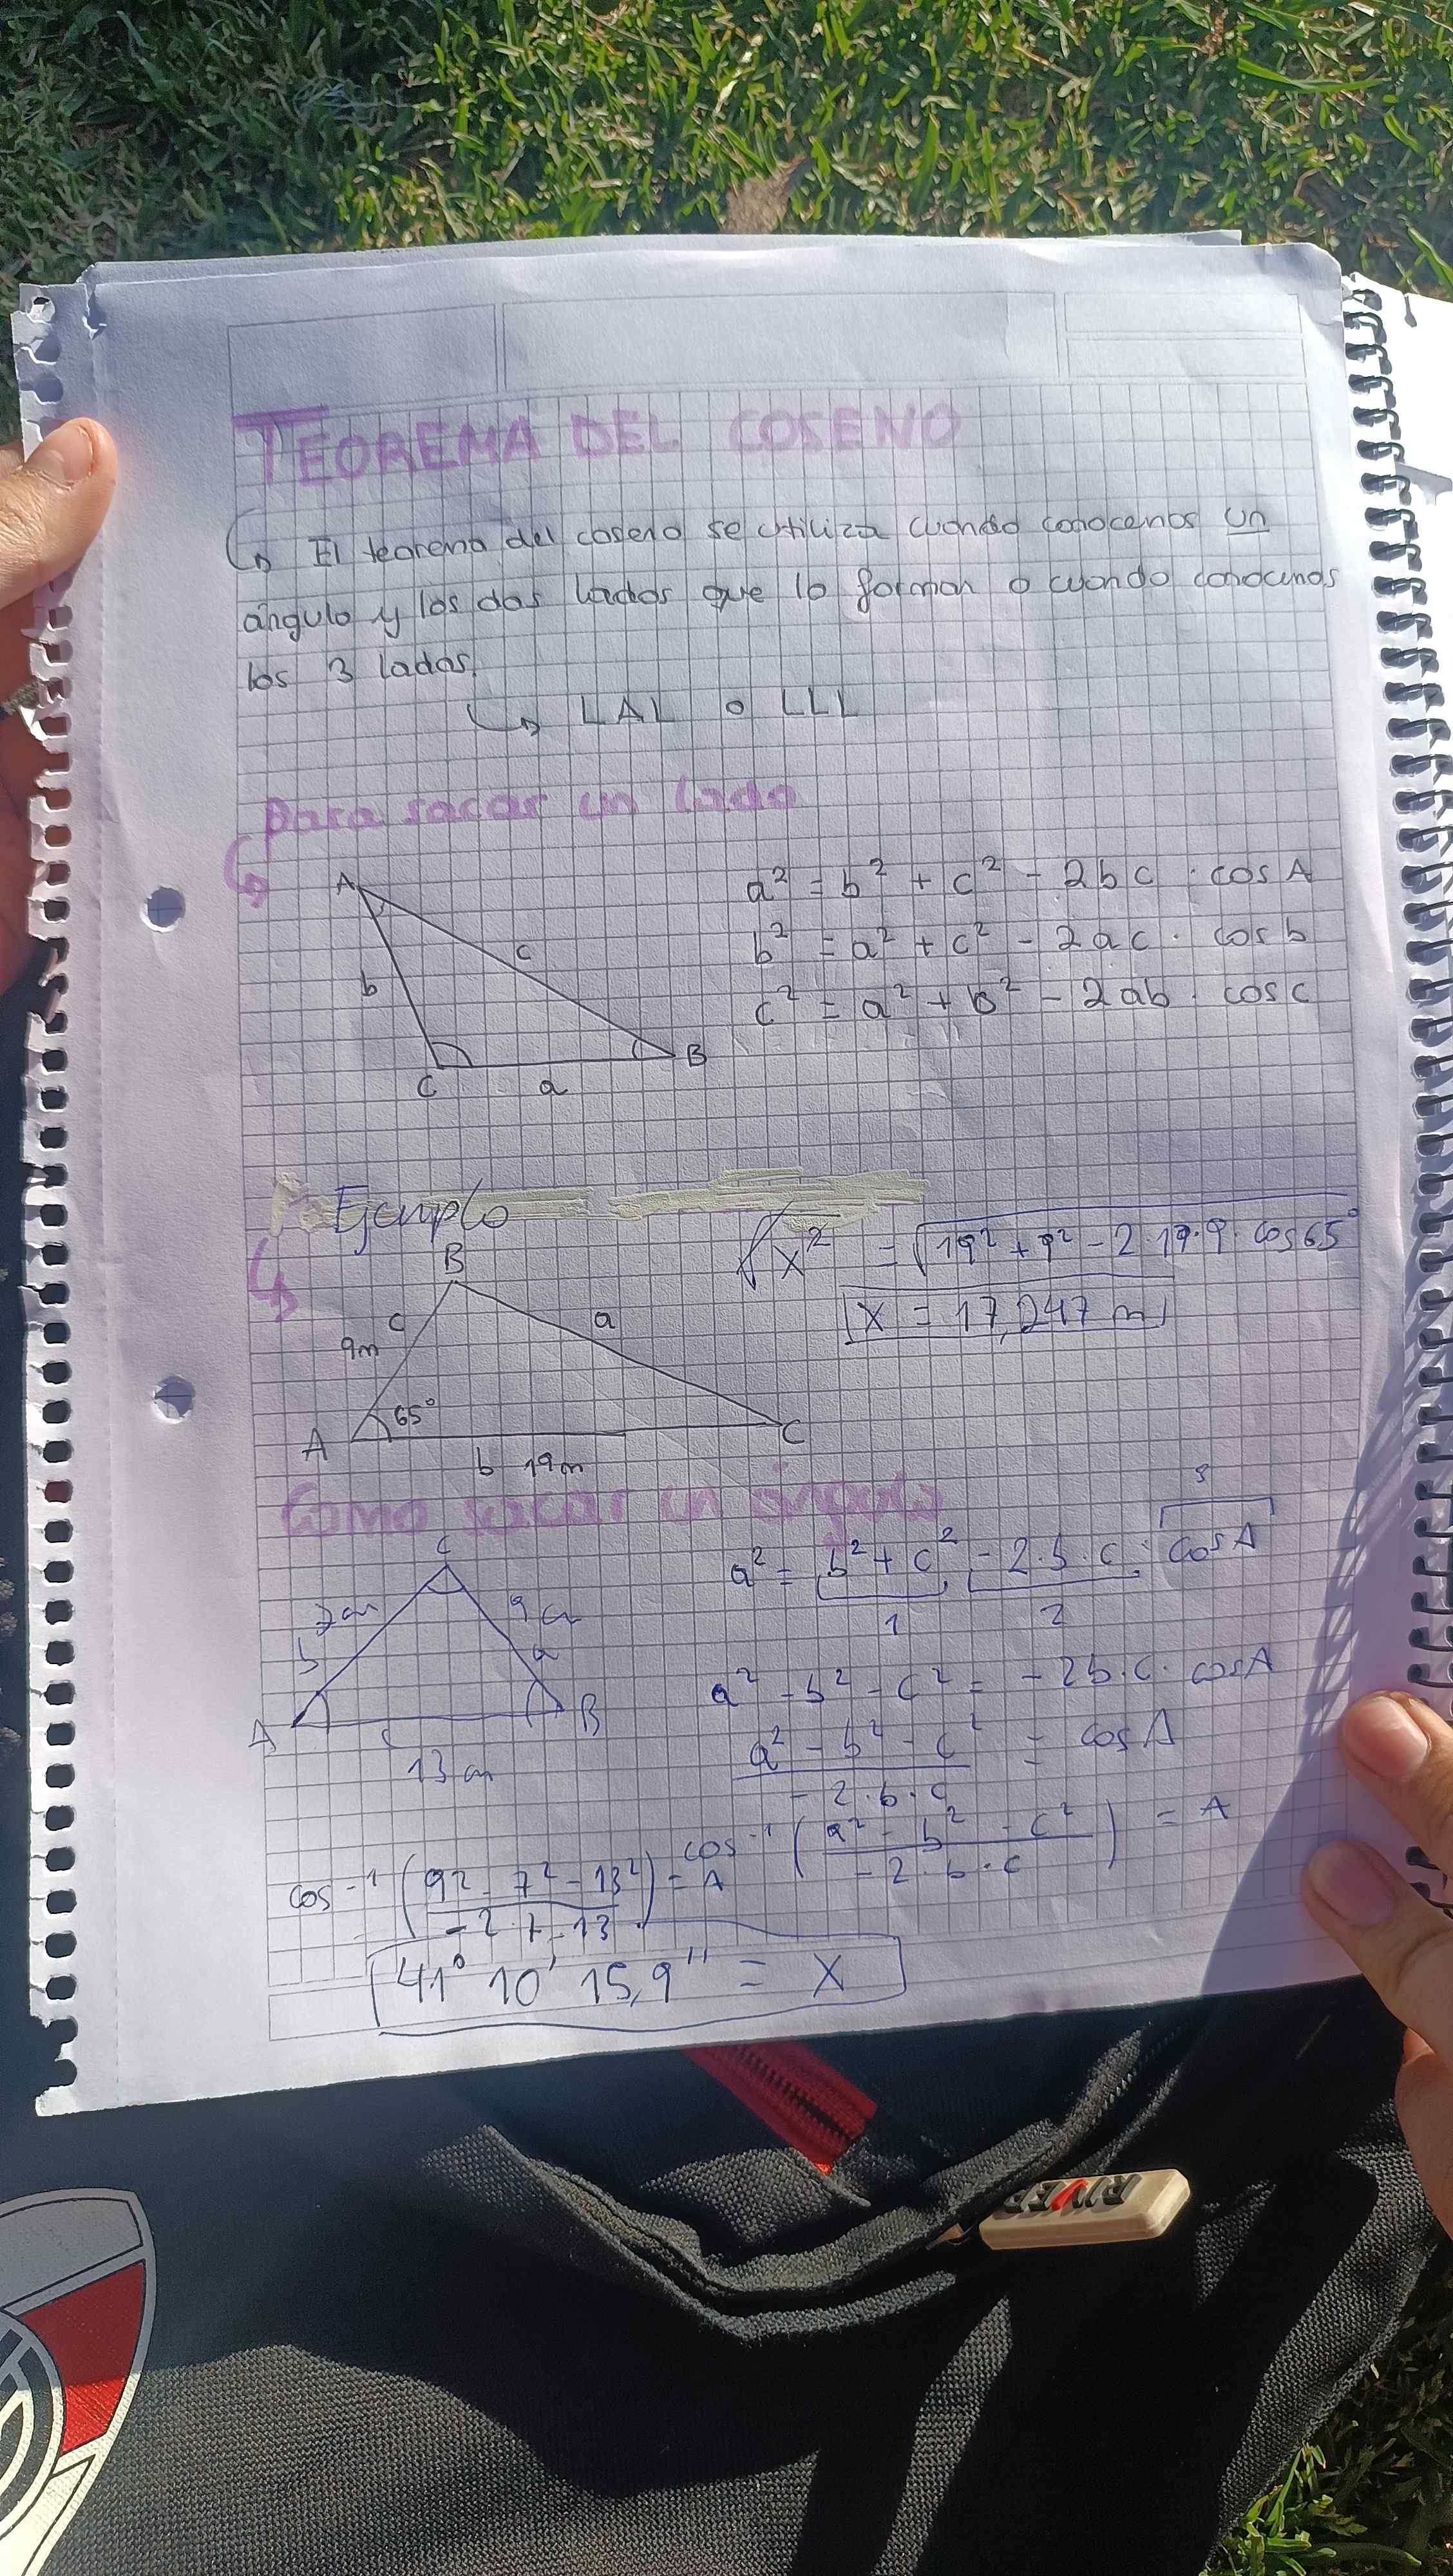 TEOREMA DEL COSENO
↳ El teorema del coseno se utiliza cuando conocemos un
ángulo y los dos lados que lo forman o cuando conocemos
los 3 lados.
↳ LAL o LLL
para sacar un lado
A
b
c
C
a
B
a² = b² + c² - 2bc · cos A
b² = a² + c² - 2ac · cos b
c² = a² + b² - 2ab · cos c
Ejemplo
B
c
9m
a
65°
A
b 19m
C
√x² = √19² + 9² - 2·19·9·cos 65°
x = 17,247 m
Como sacar un ángulo
C
7cm
9cm
b
a
A
c
B
13cm
3
a² = b² + c² - 2·b·c·cosA
1 2
a² - b² - c² = -2b·c·cosA
a² - b² - c² / -2·b·c = cosA
cos⁻¹ (a² - b² - c² / -2·b·c) = A
cos⁻¹ (9² - 7² - 13² / -2·7·13) = A
41° 10' 15,9" = X
RIVER